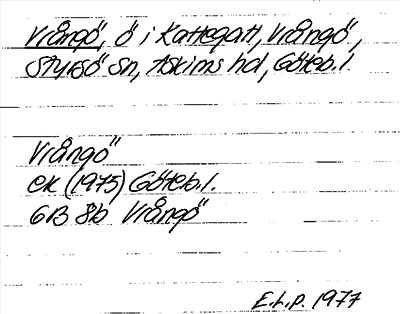 Vrångö, ö i Kattegatt, Vrångö,
Styrsö sn, Askims hd, Göteb.l.
Vrångö
ek (1975) Göteb.l.
6B 8b Vrångö
E.L.P. 1977